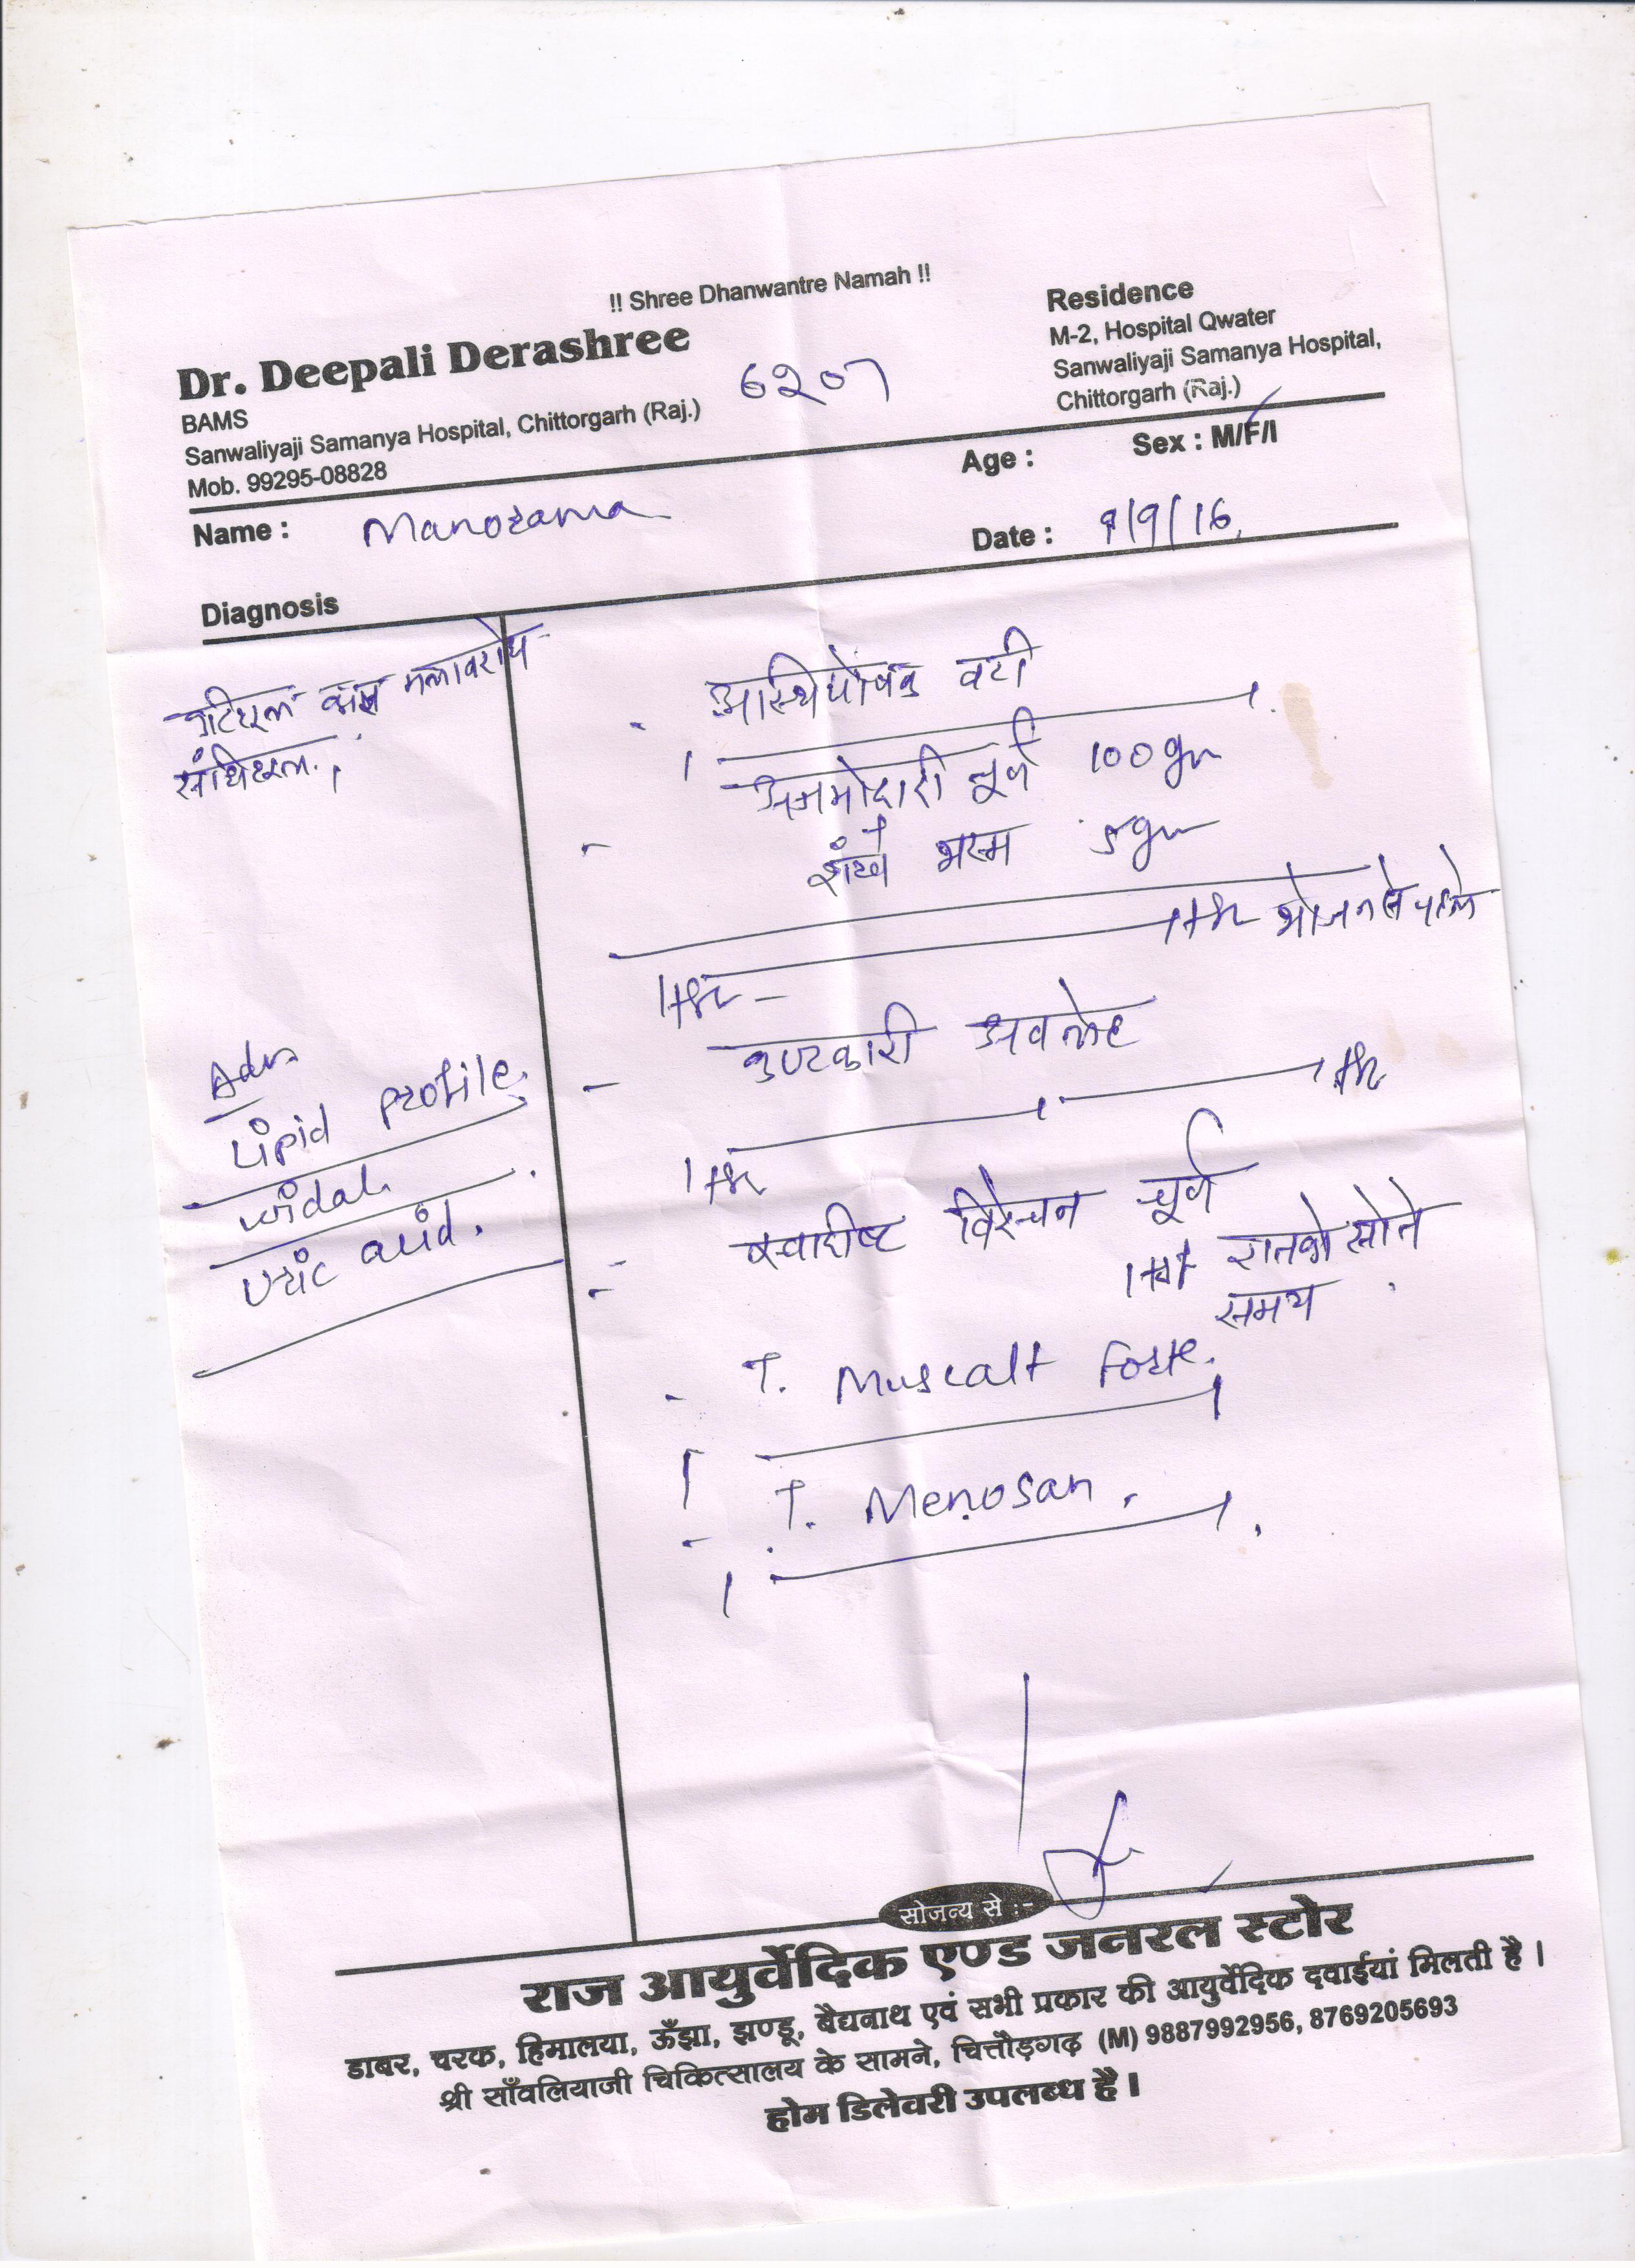 !! Shree Dhanwantre Namah !!
Dr. Deepali Derashree
BAMS
Sanwaliyaji Samanya Hospital, Chittorgarh (Raj.)
Mob. 99295-08828
6207
Residence
M-2, Hospital Qwater
Sanwaliyaji Samanya Hospital,
Chittorgarh (Raj.)
Age : Sex : M/F/I
Name : Manorama
Date : 9/9/16
Diagnosis
कटिशूल मलावरोध
संधिशूल
Adv.
Lipid Profile
widal
Uric acid.
- अस्थिपोषक वटी
1 1
- अजमोदादी चूर्ण 100 gm
शंख भस्म 5 gm
1 tsf 1 tsf भोजन से पहले
- कण्टकारी अवलेह
1 tsf 1 tsf
- स्वादीष्ट विरेचन चूर्ण
1 tsf रात को सोते
समय
- T. Muscalt Forte.
1 1
- T. Menosan.
1 1
सोजन्य से :-
राज आयुर्वेदिक एण्ड जनरल स्टोर
डाबर, चरक, हिमालया, ऊँझा, झण्डू, बैद्यनाथ एवं सभी प्रकार की आयुर्वेदिक दवाईयां मिलती है ।
श्री साँवलियाजी चिकित्सालय के सामने, चित्तौड़गढ़ (M) 9887992956, 8769205693
होम डिलेवरी उपलब्ध है ।